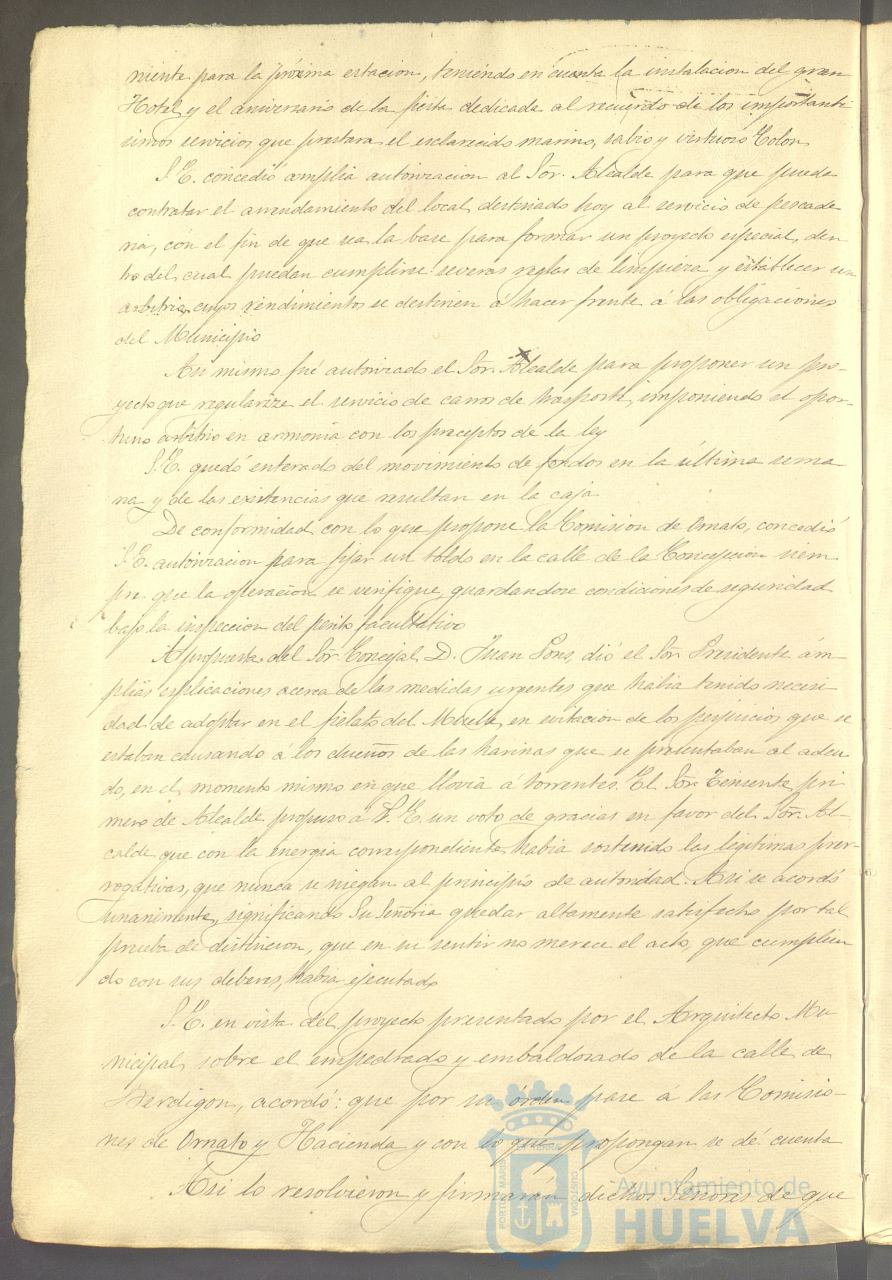 niente para la próxima estacion, teniendo en cuenta la instalacion del gran
Hotel y el aniversario de la fiesta dedicada al recuerdo de los importanti
simos servicios que prestara el esclarecido marino, sabio y virtuoso Colon.
S. E. concedió amplia autorizacion al Sor. Alcalde para que pueda
contratar el arrendamiento del local destinado hoy al servicio de pescade
ria, con el fin de que sea la base para formar un proyecto especial, den
tro del cual puedan cumplirse severas reglas de limpieza y establecer un
arbitrio cuyos rendimientos se destinen a hacer frente á las obligaciones
del Municipio
Asi mismo fué autorizado el Sor. Alcalde para proponer un pro-
yecto que regularize el servicio de carros de trasporte, imponiendo el opor-
tuno arbitrio en armonia con los preceptos de la ley
S. E. quedó enterado del movimiento de fondos en la última sema
na y de las existencias que resultan en la caja
De conformidad con lo que propone la Comision de Ornato, concedió
S. E. autorizacion para fijar un toldo en la calle de la Concepcion siem
pre que la operacion se verifique, guardandose condiciones de seguridad
bajo la inspeccion del perito facultativo
A propuesta del Sor. Concejal D. Juan Pons, dió el Sor. Presidente ám-
plias esplicaciones acerca de las medidas urgentes que habia tenido necesi
dad de adoptar en el fielato del Muelle, en evitacion de los perjuicios que se
estaban causando á los dueños de las harinas que se presentaban al adeu
do, en el momento mismo en que llovia á torrentes. El Sor. Teniente pri
mero de Alcalde propuso a S. E. un voto de gracias en favor del Sor. Al-
calde que con la energia correspondiente habia sostenido las legitimas prer-
rogativas, que nunca se niegan al principio de autoridad. Asi se acordó
unanimente, significando Su Señoria quedar altamente satisfecho por tal
prueba de distincion, que en su sentir no merece el acto, que cumplien
do con sus deberes, habia ejecutado
S. E. en vista del proyecto presentado por el Arquitecto Mu
nicipal sobre el empedrado y embaldosado de la calle de
Berdigon, acordó: que por su órden pase á las Comisio-
nes de Ornato y Hacienda y con lo que propongan se dé cuenta
Asi lo resolvieron y firmarán dichos Señores de que
Ayuntamiento de
HUELVA